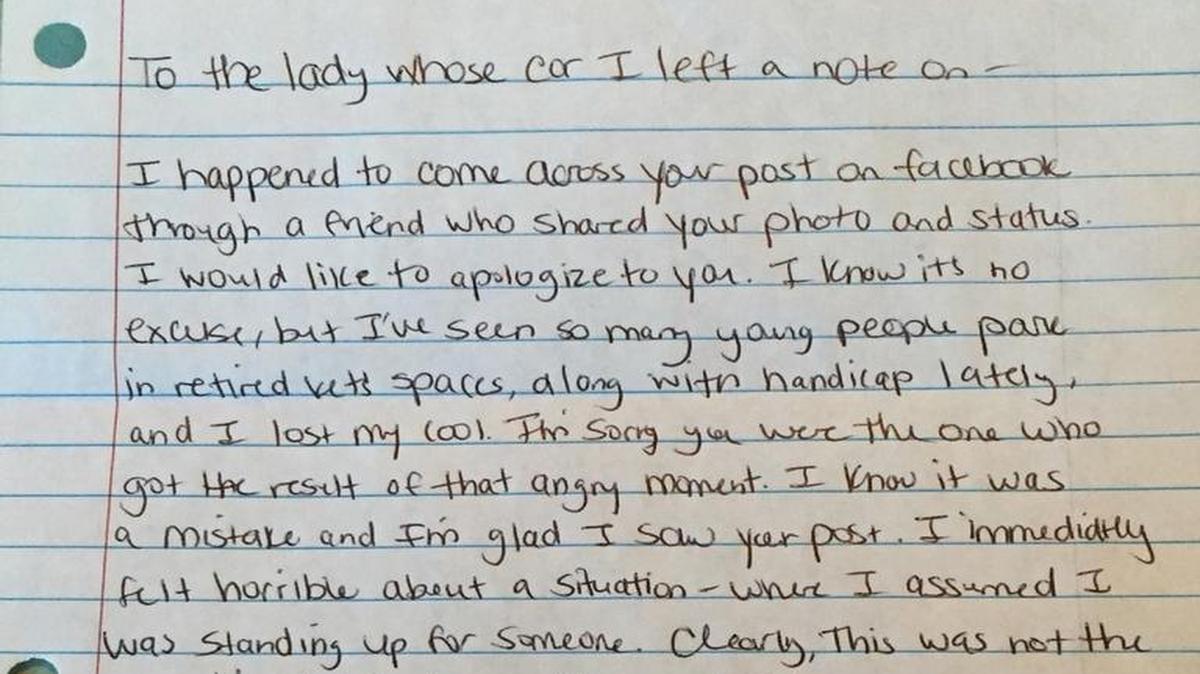 To the lady whose car I left a note on -
I happened to come across your post on facebook
through a friend who shared your photo and status.
I would like to apologize to you. I know its no
excuse, but I've seen so many young people park
in retired vets spaces, along with handicap lately,
and I lost my cool. I'm sorry you were the one who
got the result of that angry moment. I know it was
a mistake and I'm glad I saw your post. I immediatly
felt horrible about a situation - where I assumed I
was standing up for someone. Clearly, This was not the